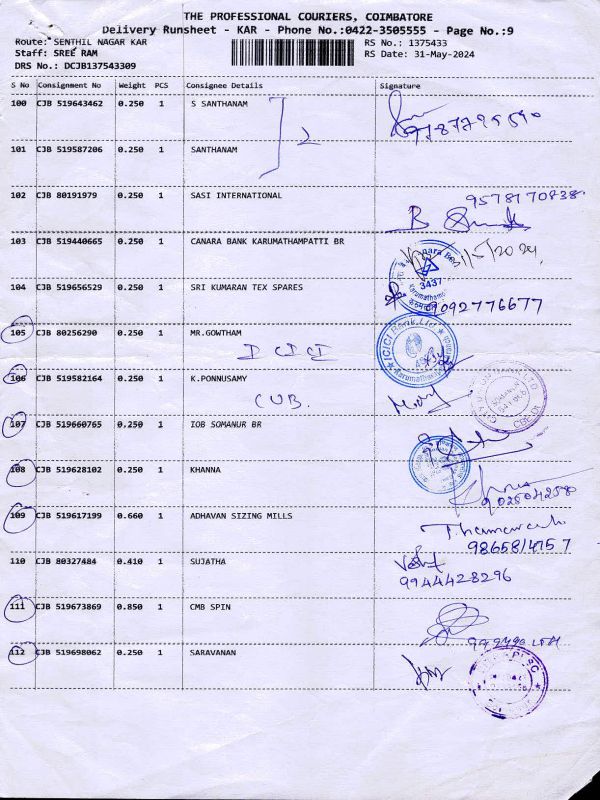 THE PROFESSIONAL COURIERS, COIMBATORE
Delivery Runsheet - KAR - Phone No.:0422-3505555 - Page No.:9
Route: SENTHIL NAGAR KAR RS No.: 1375433
Staff: SREE RAM RS Date: 31-May-2024
DRS No.: DCJB137543309
S No Consignment No Weight PCS Consignee Details Signature
100 CJB 519643462 0.250 1 S SANTHANAM
2
101 CJB 519587206 0.250 1 SANTHANAM
102 CJB 80191979 0.250 1 SASI INTERNATIONAL
9578170838
103 CJB 519440665 0.250 1 CANARA BANK KARUMATHAMPATTI BR
31/5/2024
3437
104 CJB 519656529 0.250 1 SRI KUMARAN TEX SPARES
9092776677
105 CJB 80256290 0.250 1 MR.GOWTHAM
ICICI
ICICI Bank Ltd
106 CJB 519582164 0.250 1 K.PONNUSAMY
CUB
107 CJB 519660765 0.250 1 IOB SOMANUR BR
108 CJB 519628102 0.250 1 KHANNA
109 CJB 519617199 0.660 1 ADHAVAN SIZING MILLS
110 CJB 80327484 0.410 1 SUJATHA
9944428296
111 CJB 519673869 0.850 1 CMB SPIN
112 CJB 519698062 0.250 1 SARAVANAN